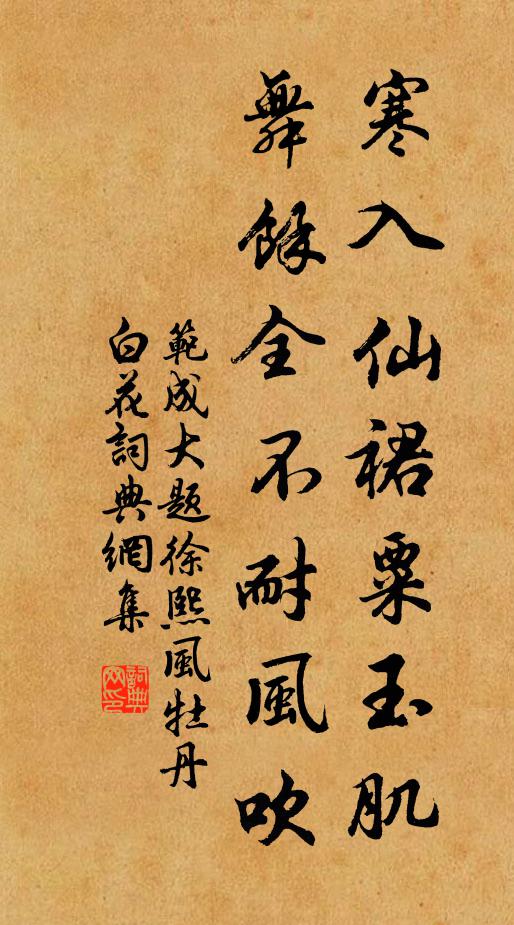 寒入仙裙粟玉肌
舞餘全不耐風吹
範成大題徐熙風牡丹
白花詞典網集
詞典網印